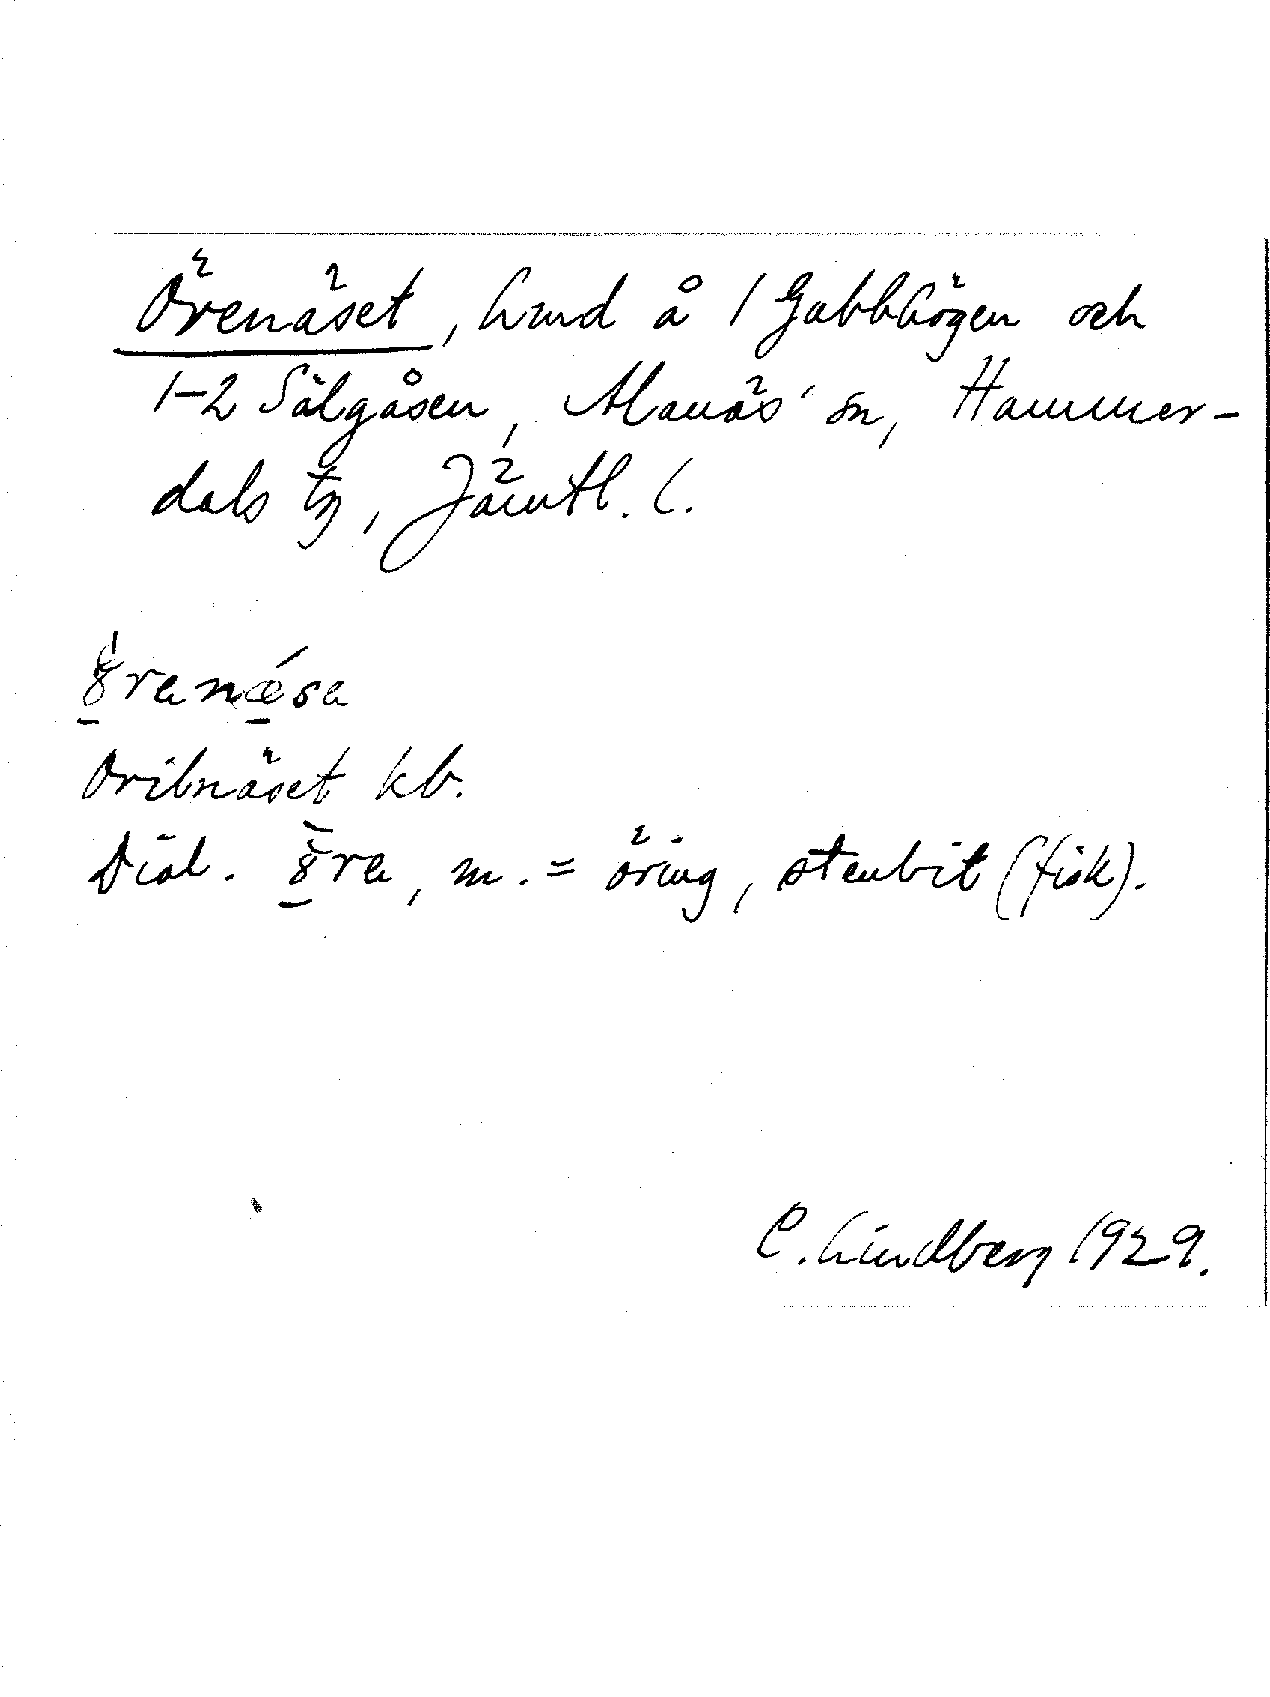 Örenäset, hmd å 1 Gabbhögen och
1-2 Sälgåsen, Alanäs' sn, Hammer-
dals tg, Jämtl. l.
ȣranǽsa
Oribnäset kb.
Dial. ȣra, m. = öring, stenbit (fisk).
C. Lindberg 1929.